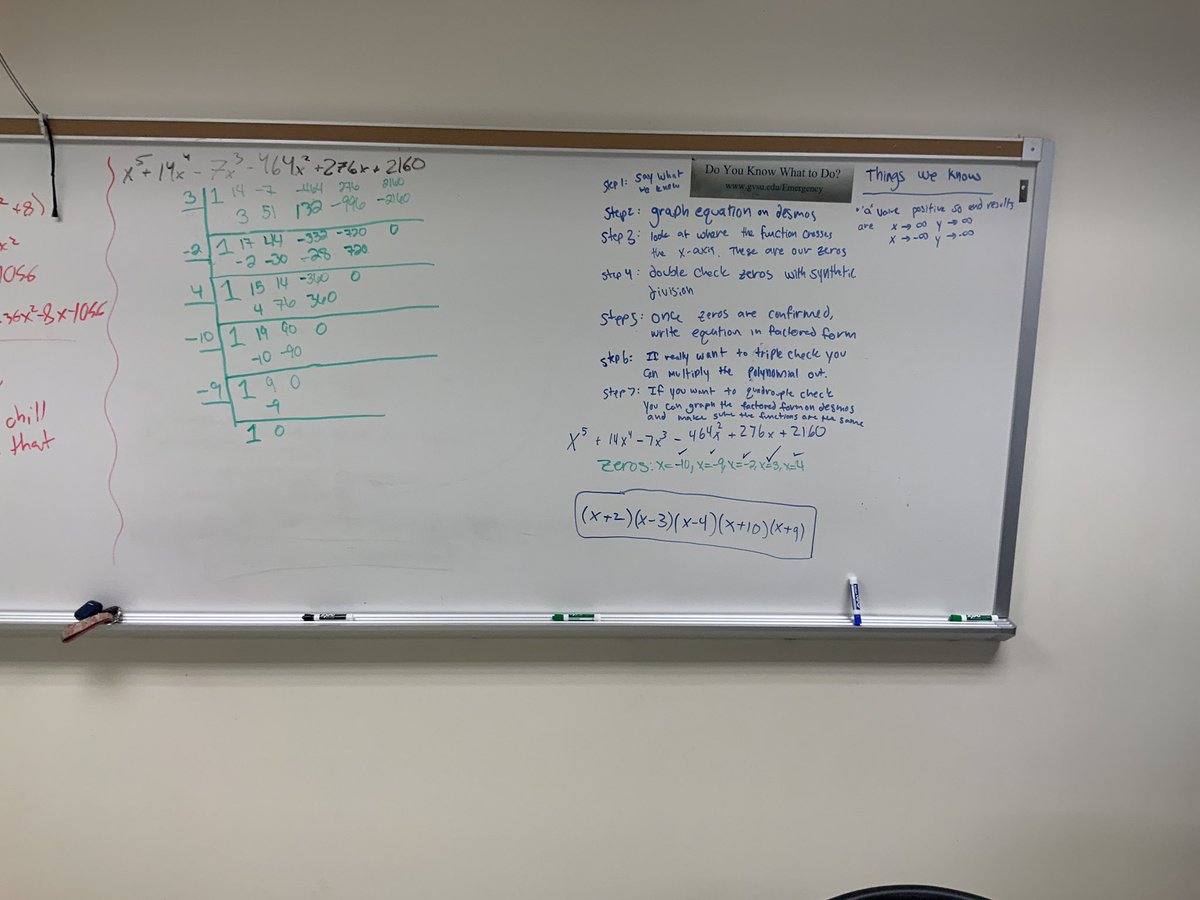 ²+8)
x²
1056
36x²-8x-1056
chill
that
x⁵+14x⁴-7x³-464x²+276x+2160
3 1 14 -7 -464 276 2160
3 51 132 -996 -2160
-2 1 17 44 -332 -720 0
-2 -30 -28 720
4 1 15 14 -360 0
4 76 360
-10 1 19 90 0
-10 -90
-9 1 9 0
-9
1 0
Step 1: Say what we know
Step 2: graph equation on desmos
Step 3: look at where the function crosses
the x-axis. These are our zeros
Step 4: double check zeros with synthetic
division
Step 5: Once zeros are confirmed,
write equation in factored form
Step 6: If really want to triple check you
can multiply the polynomial out.
Step 7: If you want to quadruple check
you can graph the factored form on desmos
and make sure the functions are the same
x⁵+14x⁴-7x³-464x²+276x+2160
Zeros: x=-10, x=-9, x=-2, x=3, x=4
(x+2)(x-3)(x-4)(x+10)(x+9)
Do You Know What to Do?
www.gvsu.edu/Emergency
Things we know
•"a" value positive so end results
are x→∞ y→∞
x→-∞ y→-∞
EXPO